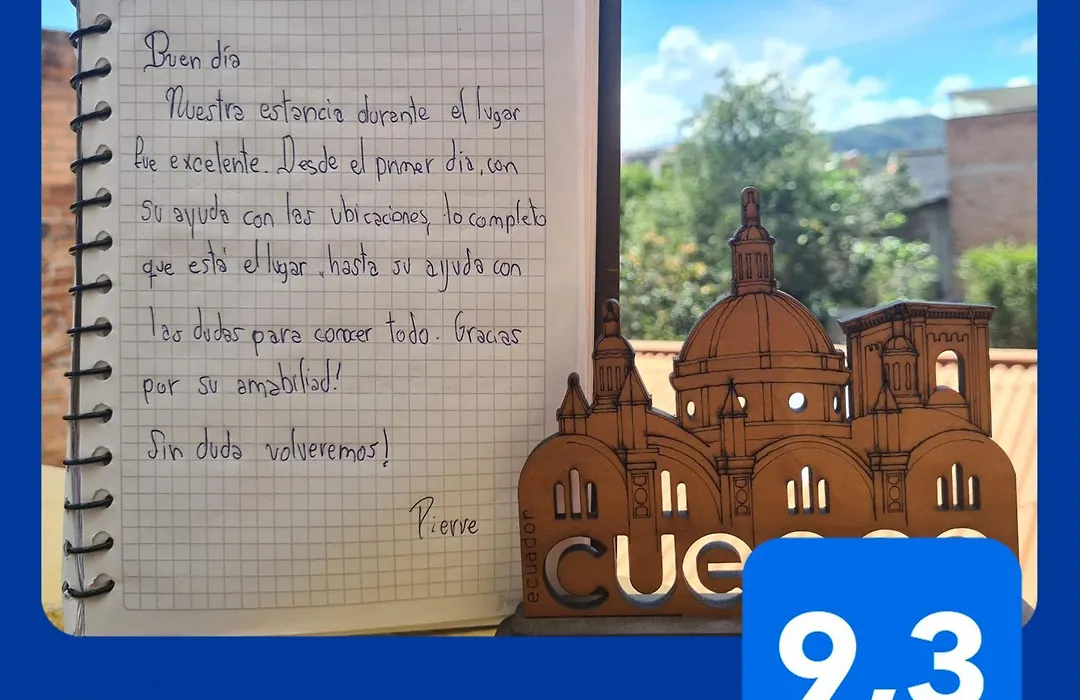 Buen día
Nuestra estancia durante el lugar
fue excelente. Desde el primer día, con
su ayuda con las ubicaciones, lo completo
que está el lugar, hasta su ayuda con
las dudas para conocer todo. Gracias
por su amabiliad!
Sin duda volveremos!
Pierre
ecuador
9,3